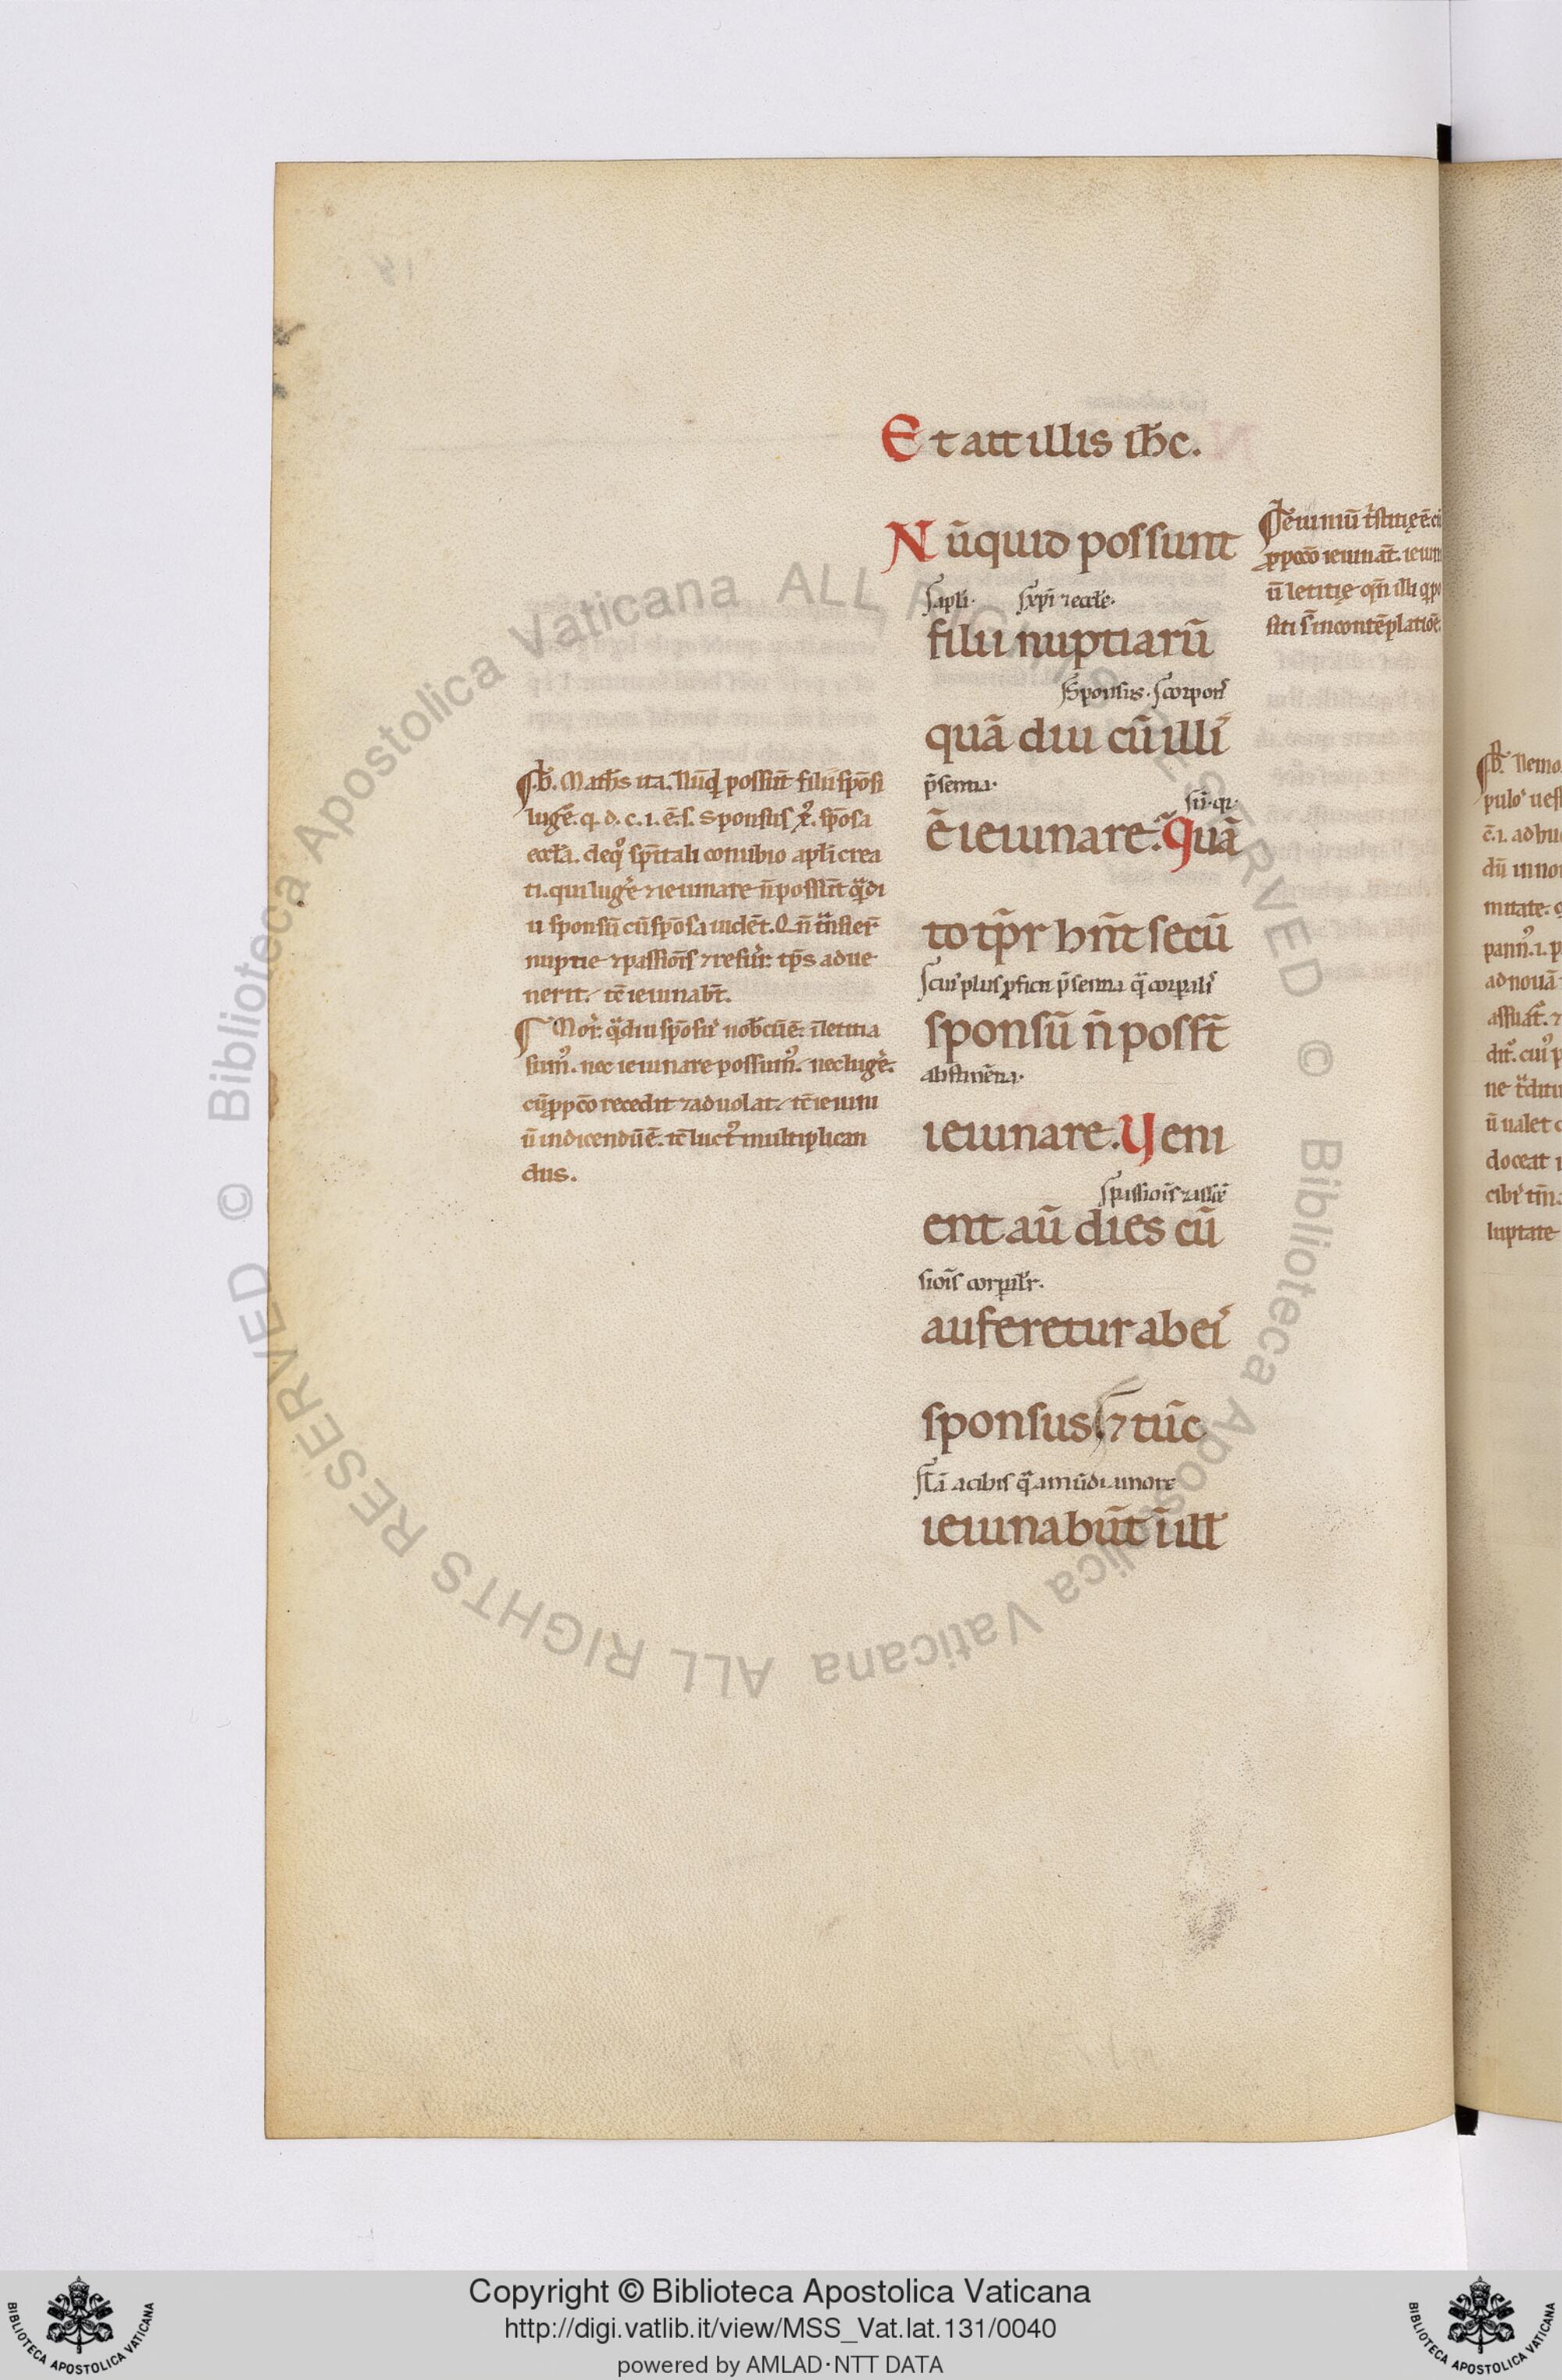 Et att illis ih̄c.
Nūquid possunt
.s. apl̄i. .s. xp̄i ⁊ eccl̄e.
filii nuptiarū
.s. sponsus. .s. corporꝭ
quā diu cū illiꝰ
p̄sentia.
ē ieiunare. Quā
to tp̄r hn̄t secū
p̄sentia
sponsū n̄ possт̄
abstinētia.
ieiunare. Veni
ent aū dies cū
sionis corpał'r.
auferetur ab eiꝰ
sponsus. ⁊ tūc
ieiunabūt ī ill
ƀ. Math̄s ita. Nūqd possūt filii spōsi
lugē. q. d. c. i. ē. s. Sponsus x̄. spōsa
eccl̄a. de qͦ sp̄itali conubio apl̄i crea
ti. qui lugē ⁊ ieiunare n̄ possūt q̄di
u sponsū cū spōsa uidēt. Qn̄ t̄nsier̄
nuptie ⁊ passiōis ⁊ resurr̄. tp̄s adue
nerit. tc̄ ieiunab̄t.
Mor̄. q̄diu spōsus nobcū ē. ī letitia
sumꝰ. nec ieiunare possumꝰ. nec lugē.
cū p̱ pccō recedit ⁊ aduolat. tc̄ ieiuni
ū indicendū ē. tc̄ luctꝰ multiplican
dus.
Ieiuniū t̄stitię ē. cū
p̱ pccō ieiunāt. ieiuni
ū letitię. qn̄ illi
siti s̄ in contēplatiōe
Nemo
pulo
ē. i. ad hu
dū in no
mitate.
pannꝰ. i. p
ad nouā
assuāt.
dit. cuiꝰ p
ne t̄ditu
ū ualet
doceat
cibi tm̄
luptate
Copyright © Biblioteca Apostolica Vaticana
http://digi.vatlib.it/view/MSS_Vat.lat.131/0040
powered by AMLAD·NTT DATA
BIBLIOTECA APOSTOLICA VATICANA
BIBLIOTECA APOSTOLICA VATICANA
© Biblioteca Apostolica Vaticana ALL RIGHTS RESERVED © Biblioteca Apostolica Vaticana ALL RIGHTS RESERVED